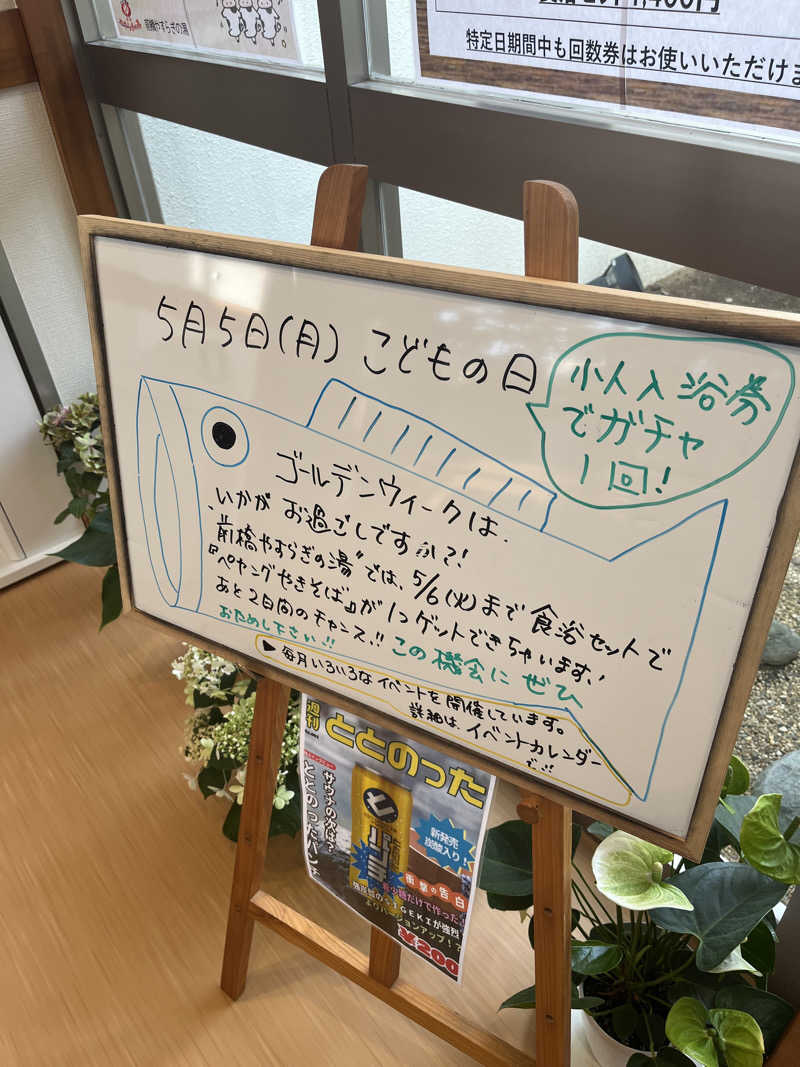 前橋やすらぎの湯
特定日期間中も回数券はお使いいただけま
5月5日(月) こどもの日
小人入浴券
でガチャ
1回!
ゴールデンウィークは、
いかが お過ごしですか?!
"前橋やすらぎの湯"では、5/6(火)まで 食浴セットで
『ペヤングやきそば』が1つゲットできちゃいます!
あと2日間のチャンス!! この機会に ぜひ
おためし下さい!!
▶毎月いろいろな イベントを 開催しています。
詳細は、イベントカレンダー
で!!
週刊
ととのった
サウナの次は?
ととのったパンチ
新発売
炭酸入り!
パンチ
衝撃の告白
だけで作った
GEKIが強烈
よりバージョンアップ!?
¥200